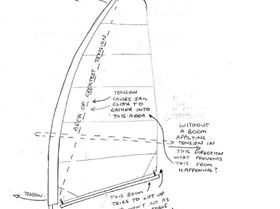 AREA OF GREATEST TENSION
TENSION
CAUSES SAIL
CLOTH TO
GATHER INTO
THIS AREA
WITHOUT
A BOOM
APPLYING
TENSION IN
THIS DIRECTION
WHAT PREVENTS
THIS FROM
HAPPENING?
TENSION
THIS BOOM
TRIES TO LIFT UP
NOT AS